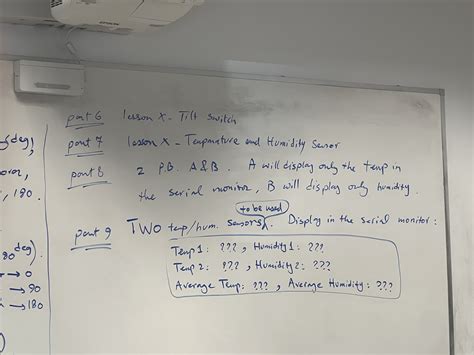 part 6 lesson X - Tilt switch
part 7 lesson X - Temperature and Humidity Sensor
part 8 2 P.B. A & B. A will display only the temp in
the serial monitor, B will display only humidity.
to be used
part 9 TWO temp/hum. sensors. Display in the serial monitor:
Temp 1: ???, Humidity 1: ???
Temp 2: ???, Humidity 2: ???
Average Temp: ???, Average Humidity: ???
deg)
, 180.
deg)
→ 0
→ 90
→ 180